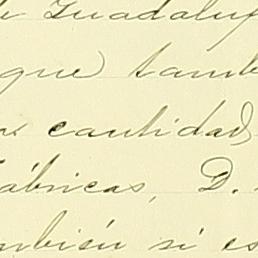 Guadalup
que tamb
cantidad
fábricas, D.
mbién si es